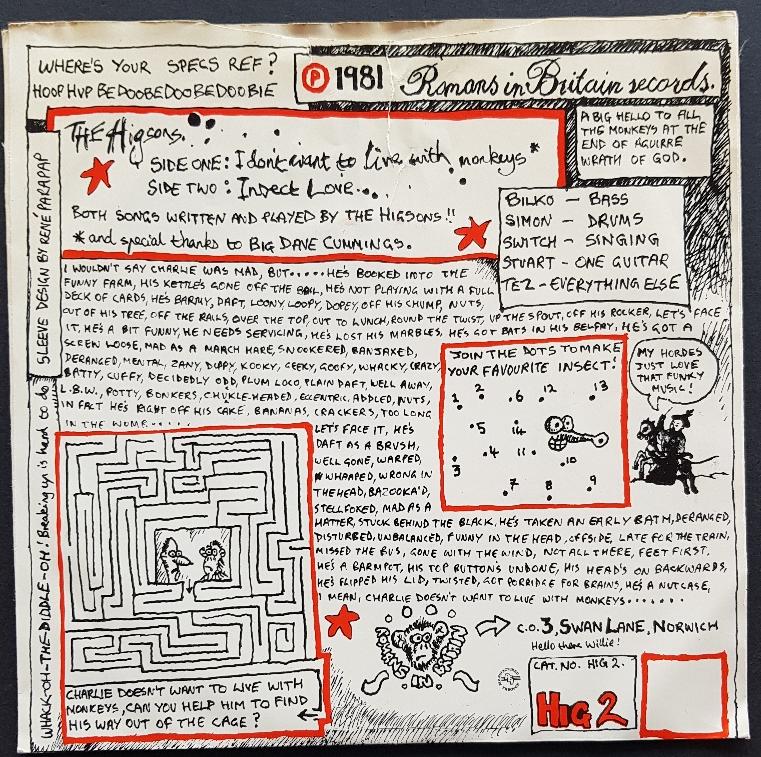 WHERE'S YOUR SPECS REF?
HOOP HUP BEDOOBEDOOBEDOOBIE
Ⓟ 1981 Romans in Britain records.
A BIG HELLO TO ALL
THE MONKEYS AT THE
END OF AGUIRRE
WRATH OF GOD.
THE Higsons.
SIDE ONE: I don't want to live with monkeys*
SIDE TWO: Insect Love...
BOTH SONGS WRITTEN AND PLAYED BY THE HIGSONS!!
*and special thanks to BIG DAVE CUMMINGS.
BILKO — BASS
SIMON — DRUMS
SWITCH — SINGING
STUART — ONE GUITAR
TEZ — EVERYTHING ELSE
SLEEVE DESIGN BY RENÉ PARAPAP
WHACK-OH-THE-DIDDLE-OH! Breaking up is hard to do
I WOULDN'T SAY CHARLIE WAS MAD, BUT.....HE'S BOOKED INTO THE
FUNNY FARM, HIS KETTLE'S GONE OFF THE BOIL, HE'S NOT PLAYING WITH A FULL
DECK OF CARDS, HE'S BARMY, DAFT, LOONY, LOOPY, DOPEY, OFF HIS CHUMP, NUTS,
OUT OF HIS TREE, OFF THE RAILS, OVER THE TOP, OUT TO LUNCH, ROUND THE TWIST, UP THE SPOUT, OFF HIS ROCKER, LET'S FACE
IT, HE'S A BIT FUNNY, HE NEEDS SERVICING, HE'S LOST HIS MARBLES, HE'S GOT BATS IN HIS BELFRY, HE'S GOT A
SCREW LOOSE, MAD AS A MARCH HARE, SNOOKERED, BANJAXED,
DERANGED, MENTAL, ZANY, DIPPY, KOOKY, GEEKY, GOOFY, WHACKY, CRAZY,
BATTY, CUFFY, DECIDEDLY ODD, PLUM LOCO, PLAIN DAFT, WELL AWAY,
L.B.W., POTTY, BONKERS, CHUKLE-HEADED, ECCENTRIC, ADDLED, NUTS,
IN FACT HE'S RIGHT OFF HIS CAKE, BANANAS, CRACKERS, TOO LONG
IN THE WOMB.....
LET'S FACE IT, HE'S
DAFT AS A BRUSH,
WELL GONE, WARPED,
WHAAPED, WRONG IN
THE HEAD, BAZOOKA'D,
STELLFOXED, MAD AS A
HATTER, STUCK BEHIND THE BLACK, HE'S TAKEN AN EARLY BATH, DERANGED,
DISTURBED, UNBALANCED, FUNNY IN THE HEAD, OFFSIDE, LATE FOR THE TRAIN,
MISSED THE BUS, GONE WITH THE WIND, NOT ALL THERE, FEET FIRST,
HE'S A BARMPOT, HIS TOP BUTTON'S UNDONE, HIS HEAD'S ON BACKWARDS,
HE'S FLIPPED HIS LID, TWISTED, GOT PORRIDGE FOR BRAINS, HE'S A NUTCASE,
I MEAN, CHARLIE DOESN'T WANT TO LIVE WITH MONKEYS.......
JOIN THE DOTS TO MAKE
YOUR FAVOURITE INSECT!
1 2 6 12 13
5 14
3 4 11 10
7 8 9
MY HORDES
JUST LOVE
THAT FUNKY
MUSIC!
CHARLIE DOESN'T WANT TO LIVE WITH
MONKEYS, CAN YOU HELP HIM TO FIND
HIS WAY OUT OF THE CAGE?
ROMANS IN BRITAIN
C.O. 3, SWAN LANE, NORWICH
Hello there Willie!
CAT. NO. HIG 2.
HIG 2